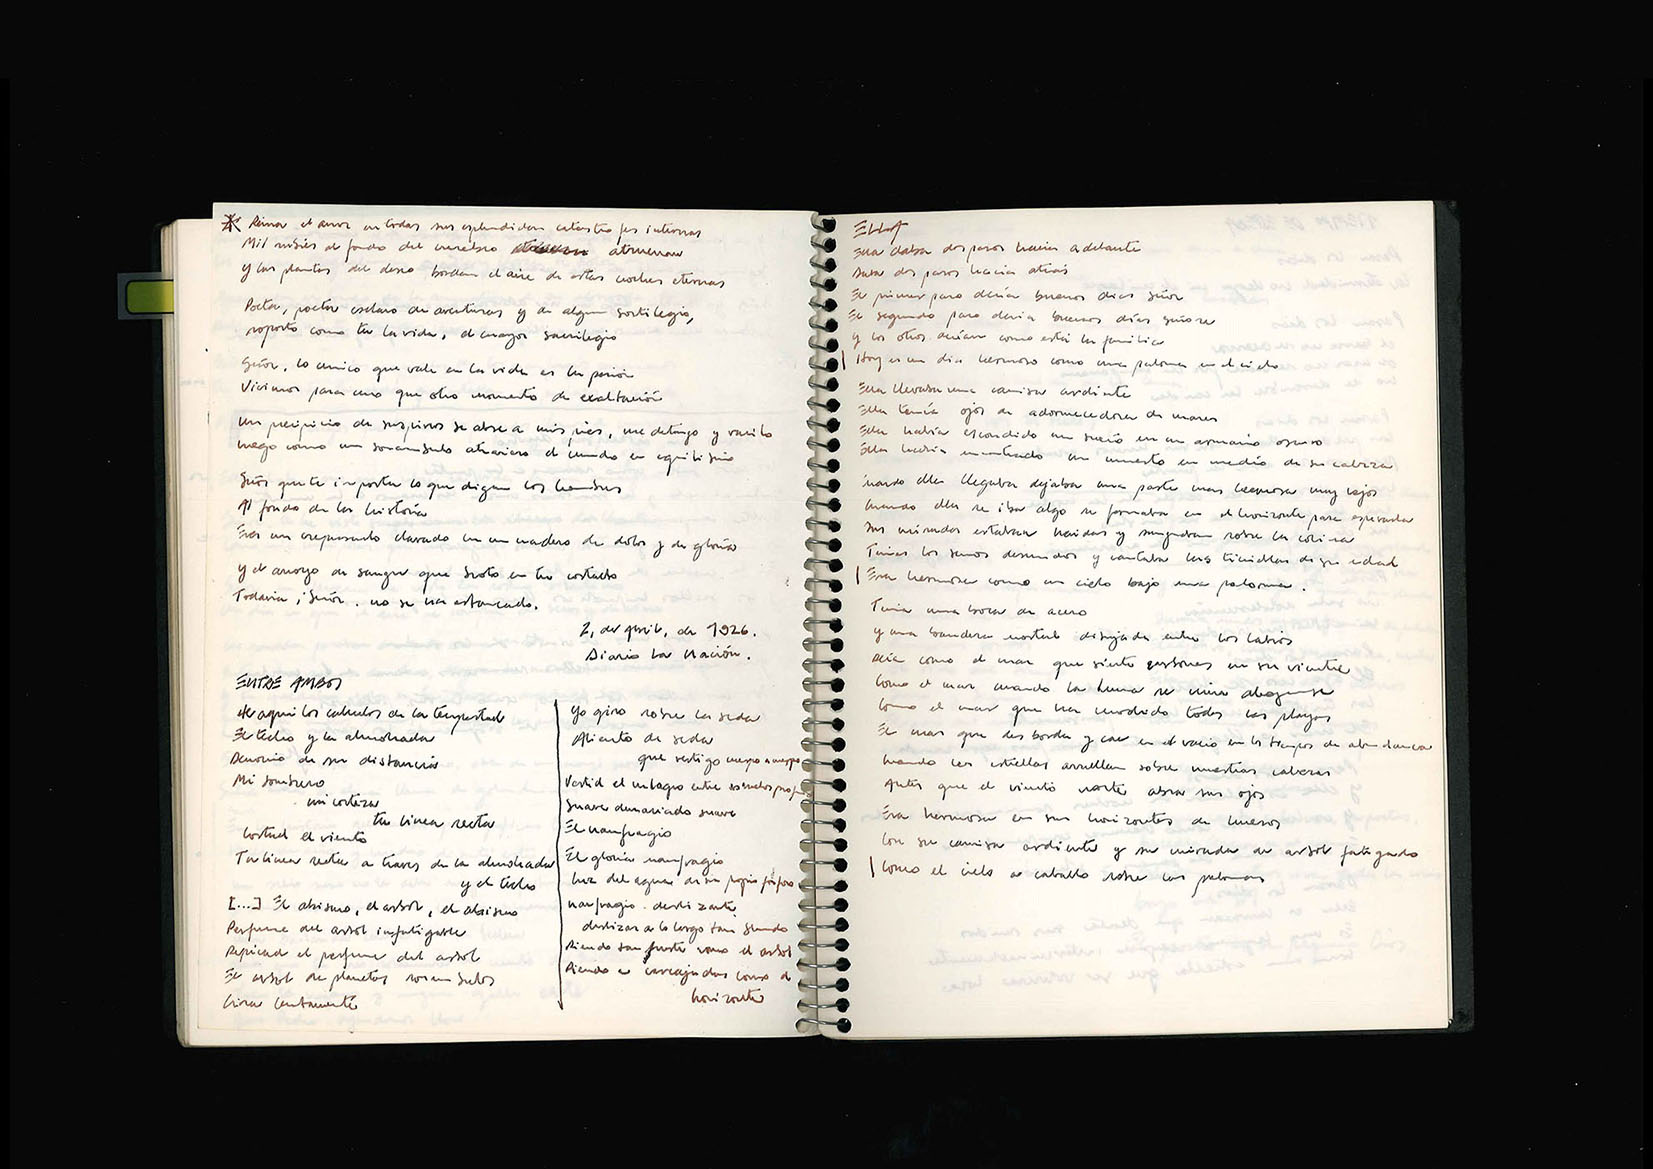 Reina el amor en todas sus esplendidas catastrofes internas
Mil rubíes al fondo del cerebro atruenan
y las plantas del deseo bordan el aire de estas noches eternas
Poeta, poeta esclavo de aventuras y de algun sortilegio,
soporto como tu la vida, el mayor sacrilegio
Señor, lo unico que vale en la vida es la pasión
Vivimos para uno que otro momento de exaltación
un precipicio de suspiros se abre a mis pies, me detengo y vacilo
luego como un sonámbulo atravieso el mundo en equilibrio
Señor que te importa lo que digan los hombres
Al fondo de la historia
Eres un crepusculo clavado en un madero de dolor y de gloria
y el arroyo de sangre que brota en tu costado
Todavia, Señor. no se ha estancado.
2, de April, de 1926.
Diario La Nación.
ENTRE AMBOS
He aqui los calculos de la tempestad
El techo y la almohada
Demonio de su distancia
Mi sombrero
mi corteza
tu linea recta
Cortad el viento
Tu linea recta a traves de la almohada
y el techo
[...] El abismo, el arbol, el abismo
Perfume del arbol infatigable
Repicad el perfume del arbol
El arbol de planetas sonambulos
Giran lentamente
Yo giro sobre la seda
Aliento de seda
que vertigo cuerpo a cuerpo
Vertid el milagro entre
Suave demasiado suave
El naufragio
El gloria naufragio
Luz del agua de su propio fósforo
naufragio deslizante
deslizar a lo largo tan blando
Riendo tan fuerte como el arbol
Riendo a carcajadas como el
horizonte
ELLA
Ella daba dos pasos hacia adelante
Daba dos pasos hacia atrás
El primer paso decía buenos dias Señor
El segundo paso decia buenos días señora
y los otros decían como está la familia
Hoy es un dia hermoso como una paloma en el cielo
Ella llevaba una camisa ardiente
Ella tenía ojos de adormecedora de mares
Ella había escondido un sueño en un armario oscuro
Ella habia encontrado un muerto en medio de su cabeza
Cuando ella llegaba dejaba una parte mas hermosa muy lejos
Cuando ella se iba algo se formaba en el horizonte para esperarla
Sus miradas estaban heridas y sangraban sobre la colina
Tenia los senos desnudos y cantaba las tinieblas de su edad
Era hermosa como un cielo bajo una paloma.
Tenia una boca de acero
y una bandera mortal dibujada entre los labios
Reía como el mar que siente carbones en su vientre
Como el mar cuando la luna se mira ahogarse
Como el mar que ha mordido todas las playas
El mar que desborda y cae en el vacio en los tiempos de abundancia
Cuando las estrellas arrullan sobre nuestras cabezas
Antes que el viento norte abra sus ojos
Era hermosa en sus horizontes de huesos
Con su camisa ardiente y su mirada de arbol fatigado
Como el cielo a caballo sobre las palomas